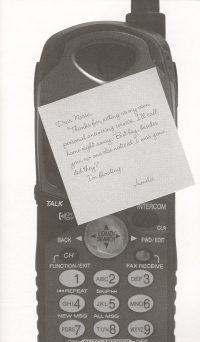 Dear Nessa,
Thanks for acting as my own
personal answering service. I'll call
home right away. But hey, besides
you, no one else noticed I was gone,
did they?
I'm floating,
Amelia
TALK
INTERCOM
CLR
LOUD/
SEARCH
BACK
FWD/EDIT
CH
FUNCTION/EXIT
FAX RECEIVE
1
ABC 2
DEF 3
REPEAT
SKIP
GHI 4
JKL 5
MNO 6
NEW MSG
ALL MSG
PQRS 7
TUV 8
WXYZ 9